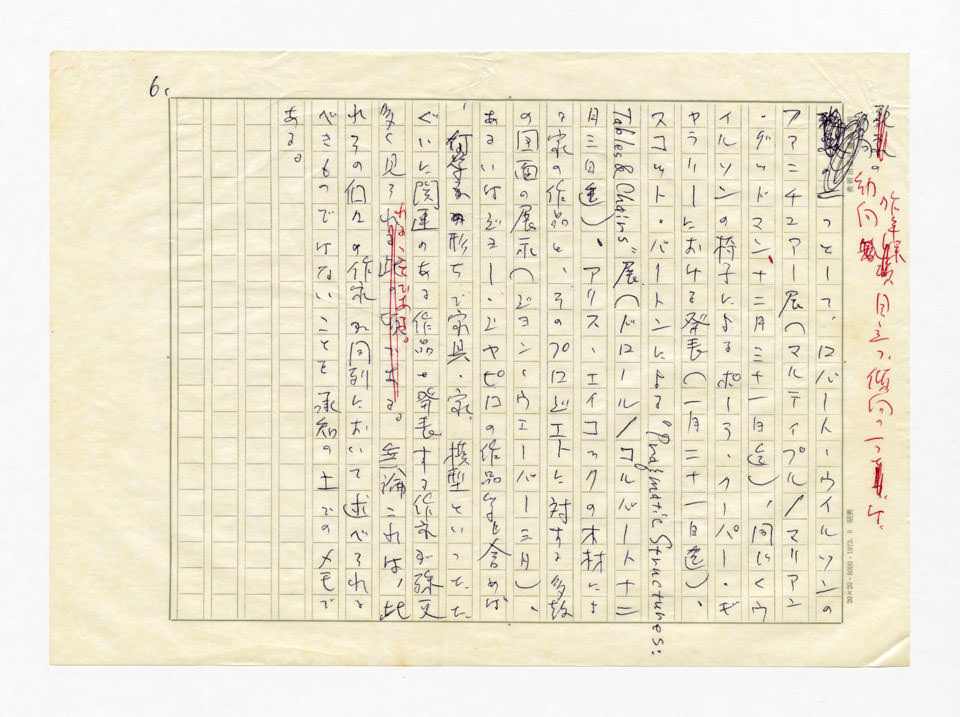 6.
の一つとして、ロバート・ウイルソンの
ファニチュアー展（マルティプル/マリアン
・グッドマン、十二月三十一日迄）、同じくウ
イルソンの椅子によるポーラ・クーパー・ギ
ャラリーにおける発表（一月二十一日迄）、
スコット・バートンによる"Pragmatic Structures:
Tables & Chairs"展（ドロール/ヒルバート十二
月三日迄）、アリス・エイコックの木材によ
る家の作品と、そのプロジェクトに対する多数
の図面の展示（ジョン・ウェーバー三月）、
あるいはジョー・シャピロの作品等も含めば
、何等かの形ちで家具、家、模型といったた
ぐいに関連のある作品を発表する作家が数
多く見られる此の頃である。無論これは、此
れらの個々の作家が同列において述べられる
べきものでないことを承知の上でのメモで
ある。
目立つ傾向の一つは、
20×20・8000・1973. 8